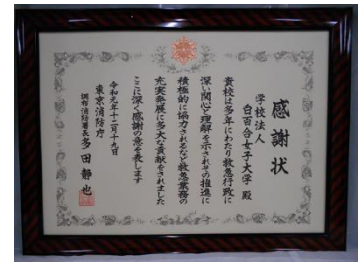 感謝状
学校法人
白百合女子大学 殿
貴校は多年にわたり救急行政に
深い関心と理解を示されその推進に
積極的に協力されるなど救急業務の
充実発展に多大な貢献をされました
ここに深く感謝の意を表します
令和元年十二月十九日
東京消防庁
調布消防署長 多田 静也